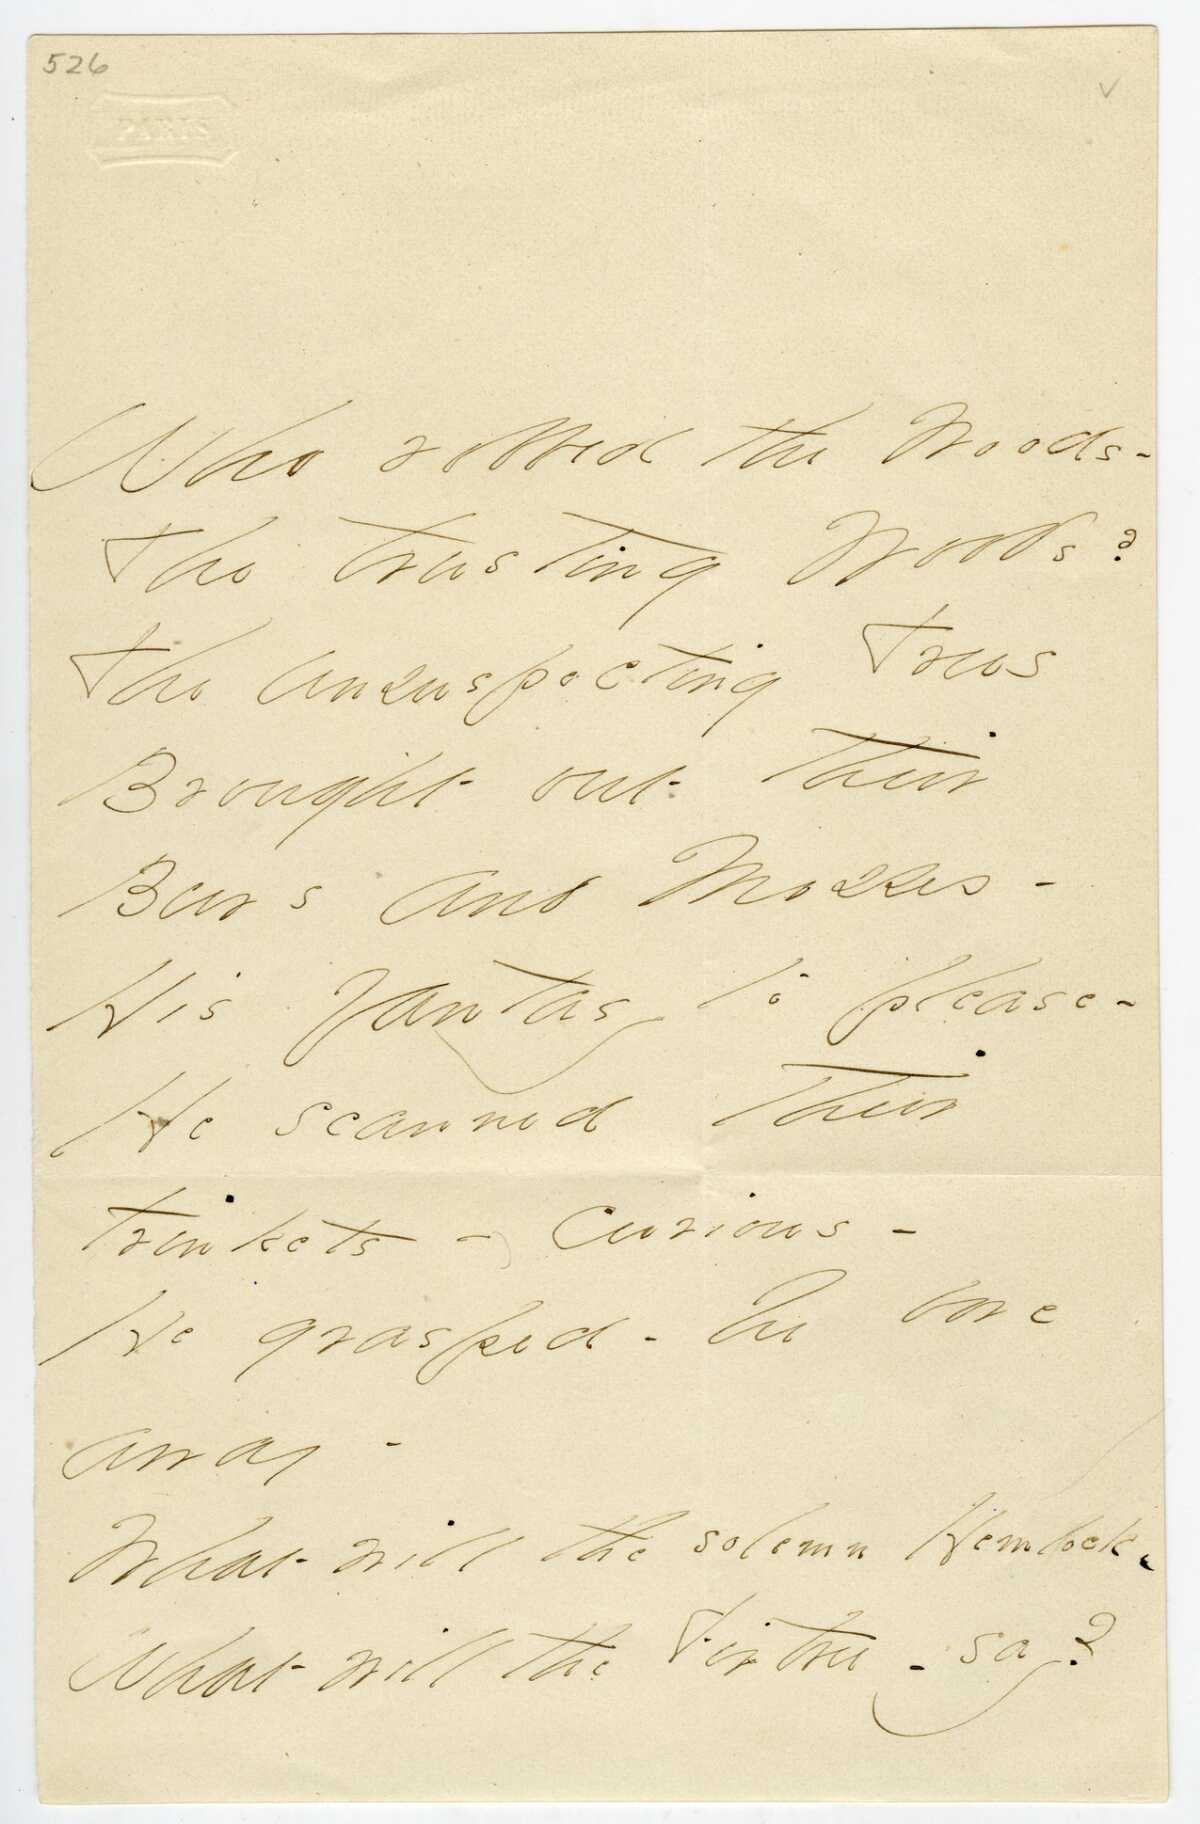 526
Who robbed the Woods -
The trusting Woods?
The unsuspecting Trees
Brought out their
Burs and Mosses -
His fantasy to please -
He scanned their
trinkets - curious -
He grasped - he bore
away -
What will the solemn Hemlock -
What will the Fir tree - say?